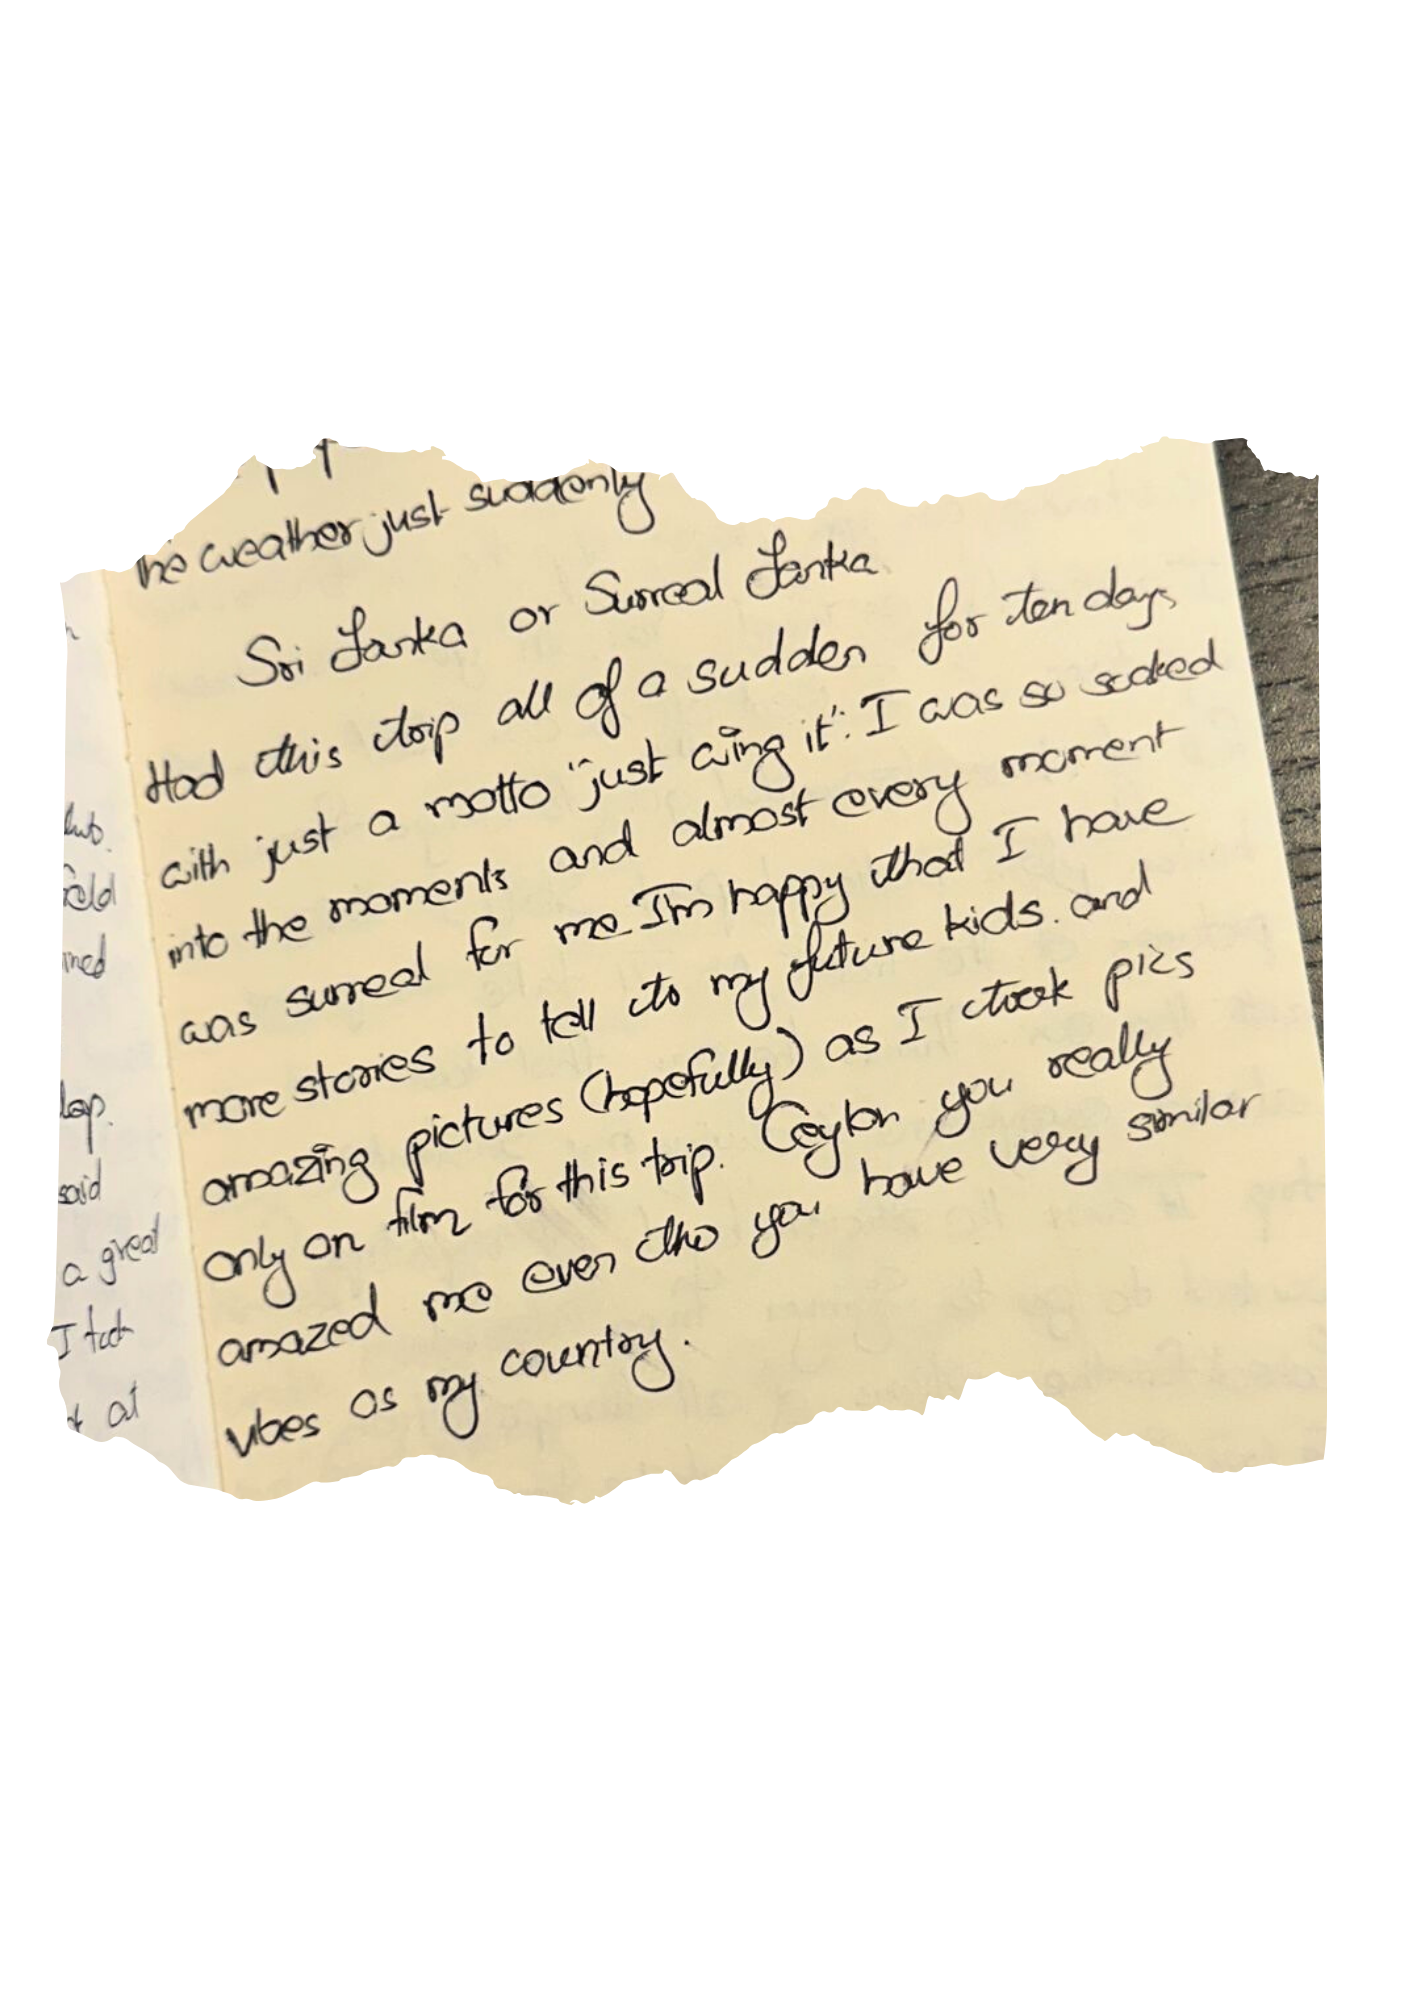 the weather just suddenly
Sri Lanka or Surreal Lanka
Had this trip all of a sudden for ten days
with just a motto "just wing it". I was so soaked
into the moments and almost every moment
was surreal for me. I'm happy that I have
more stories to tell to my future kids. and
amazing pictures (hopefully) as I took pics
only on film for this trip. Ceylon you really
amazed me even tho you have very similar
vibes as my country.
lap.
said
a great
I took
at